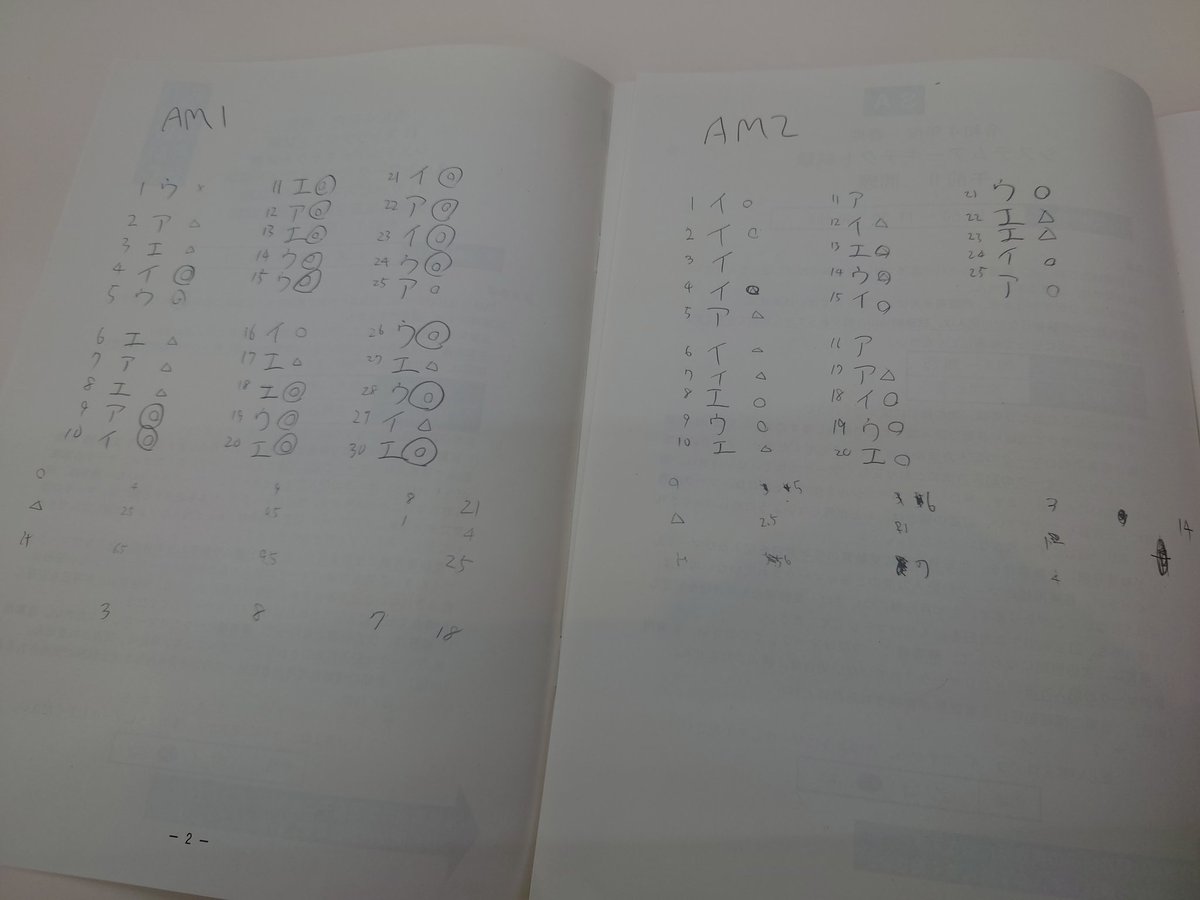 AM1
1 ウ ×
2 ア △
3 エ △
4 イ ◎
5 ウ ○
6 エ △
7 ア △
8 エ △
9 ア ◎
10 イ ◎
11 エ ◎
12 ア ◎
13 エ ◎
14 ウ ◎
15 ウ ◎
16 イ ○
17 エ △
18 エ ◎
19 ウ ◎
20 エ ◎
21 イ ◎
22 ア ◎
23 イ ◎
24 ウ ◎
25 ア ○
26 ウ ◎
27 エ △
28 ウ ◎
29 イ △
30 エ ◎
○ 4 9 8 21
△ 25 05 1 4
計 65 95 25
3 8 7 18
- 2 -
AM2
1 イ ○
2 イ ○
3 イ
4 イ ○
5 ア △
6 イ △
7 イ △
8 エ ○
9 ウ ○
10 エ △
11 ア
12 イ △
13 エ ○
14 ウ ○
15 イ ○
11 ア
17 ア △
18 イ ○
19 ウ ○
20 エ ○
21 ウ ○
22 エ △
23 エ △
24 イ ○
25 ア ○
○ 5 6 3 14
△ 25 1